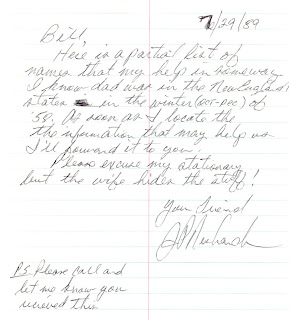 7/29/89
Bill,
Here is a partial list of
names that my help in someway
I know dad was in the New England
states in the winter (oct-dec) of
'58. As soon as I locate the
the information that may help us
I'll forward it to you.
Please excuse my stationary
but the wife hides the stuff!
Your friend
P.S. Please call and
let me know you
recieved this